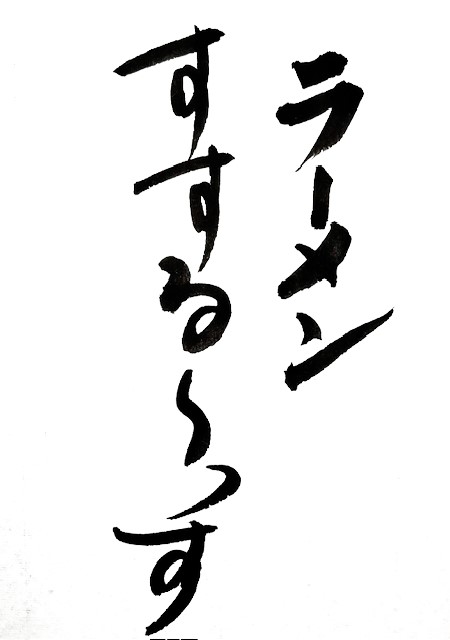 ラーメン
すする〜っす